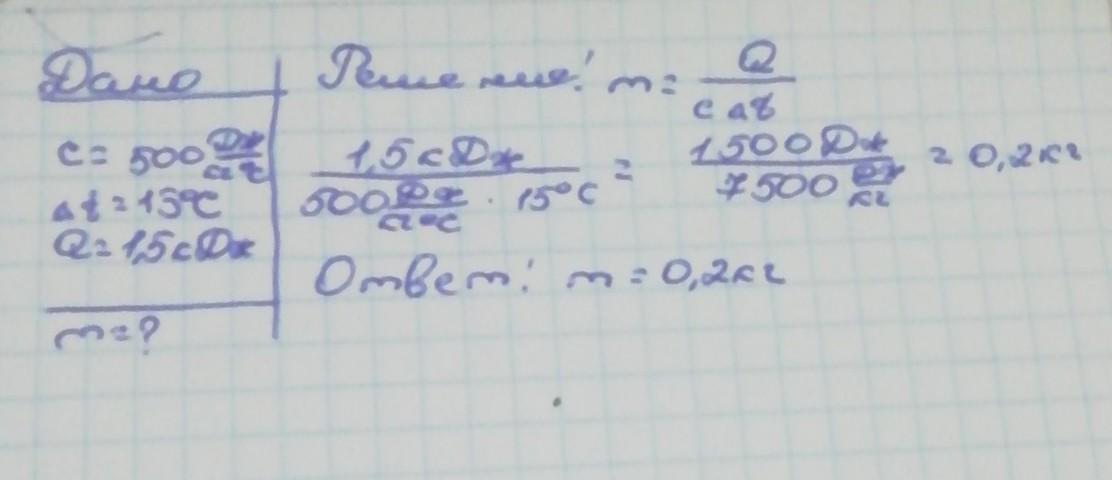 Дано
c = 500 Дж/кг°C
Δt = 15°C
Q = 1,5 кДж
m = ?
Решение: m = Q/cΔt
1,5 кДж/(500 Дж/кг°C · 15°C) = 1500 Дж/7500 Дж/кг = 0,2 кг
Ответ: m = 0,2 кг